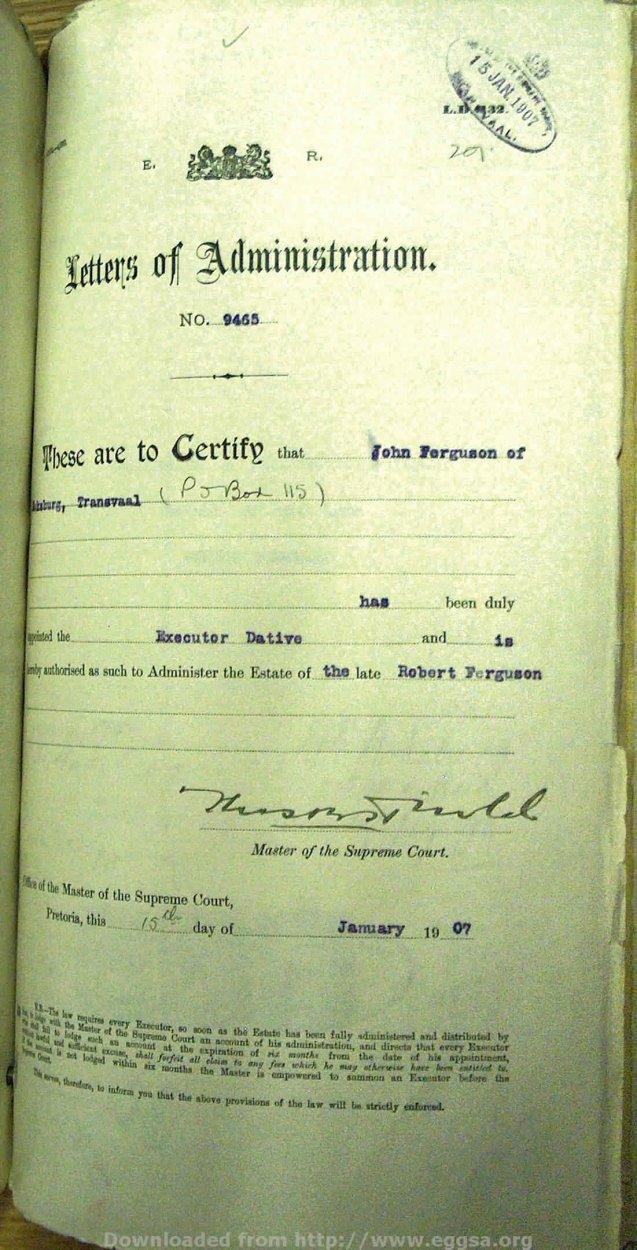 15 JAN. 1907
L.D. 1132.
201
E. R.
Letters of Administration.
NO. 9465
These are to Certify that John Ferguson of
burg, Transvaal (P O Box 115)
has been duly
appointed the Executor Dative and is
hereby authorised as such to Administer the Estate of the late Robert Ferguson
Master of the Supreme Court.
Office of the Master of the Supreme Court,
Pretoria, this 15th day of January 1907
N.B.—The law requires every Executor, so soon as the Estate has been fully administered and distributed by
to lodge with the Master of the Supreme Court an account of his administration, and directs that every Executor
shall fail to lodge such an account at the expiration of six months from the date of his appointment,
lawful and sufficient excuse, shall forfeit all claim to any fees which he may otherwise have been entitled to.
if the account is not lodged within six months the Master is empowered to summon an Executor before the
Supreme Court.
This serves, therefore, to inform you that the above provisions of the law will be strictly enforced.
Downloaded from http://www.eggsa.org